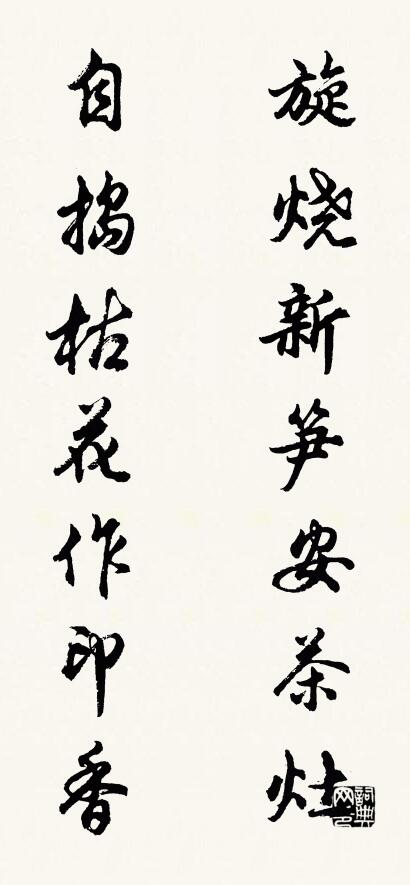 旋烧新笋安茶灶
自捣枯花作印香